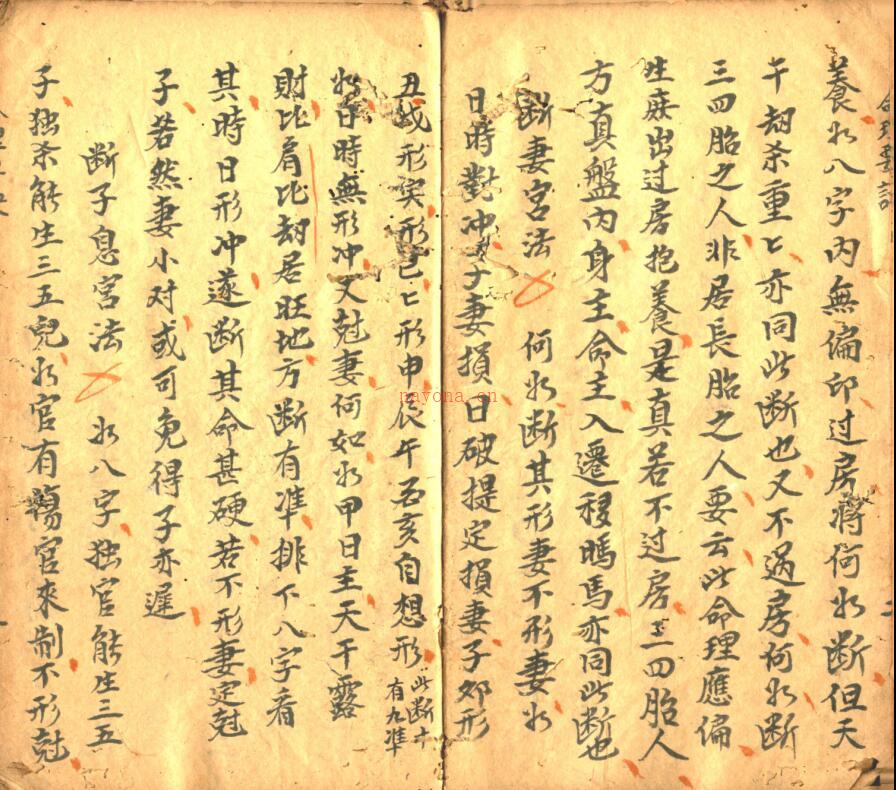 養如八字內無偏印过房将何如断但天
干刼杀重ヒ亦同此断也又不过房何如断
三四胎之人非居長胎之人要云此命理應偏
生庶出过房抱養是真若不过房三四胎人
方真盤內身主命主入遷移鴫馬亦同此断也
断妻宮法 何如断其形妻不形妻如
日時對冲子妻損日破提定損妻子夘形
丑戌形寅形巳ヒ形申辰午酉亥自想形 此断十有九準
如日時無形冲又尅妻何如如甲日主天干露
財比肩比刼居旺地方断有準排下八字看
其時日形冲遂断其命甚硬若不形妻定尅
子若然妻小对或可免得子亦遲
断子息宮法 如八字独官能生三五
子独杀能生三五兒如官有傷官來制不形尅
nayona.cn